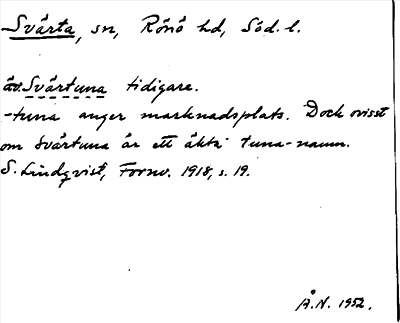 Svärta, sn, Rönö hd, Söd. l.
äv. Svärtuna tidigare.
-tuna anger marknadsplats. Dock ovisst
om Svärtuna är ett äkta tuna-namn.
S. Lindqvist, Fornv. 1918, s. 19.
Å.N. 1952.